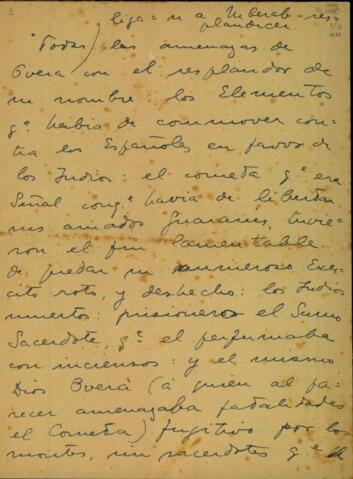 liga=u a Uberab=res-
plandecer
"Todas las amenazas de
Overa con el resplandor de
su nombre: los Elementos
q.e habia de commover con-
tra los Españoles en favor de
los Indios: el cometa q.e era
Señal con q.e havia de libertar
sus amados Guaranis, tuvie-
ron el fin lamentable
de quedar un numeroso Exer-
cito roto, y deshecho: los Indios
muertos: prisionero el Sumo
Sacerdote, q.e el perfumaba
con inciensos: y el mismo
Dios Overá (à quien al pa-
recer amenazaba fatalidades
el Cometa) fugitivo por los
montes, sin sacerdotes q.e